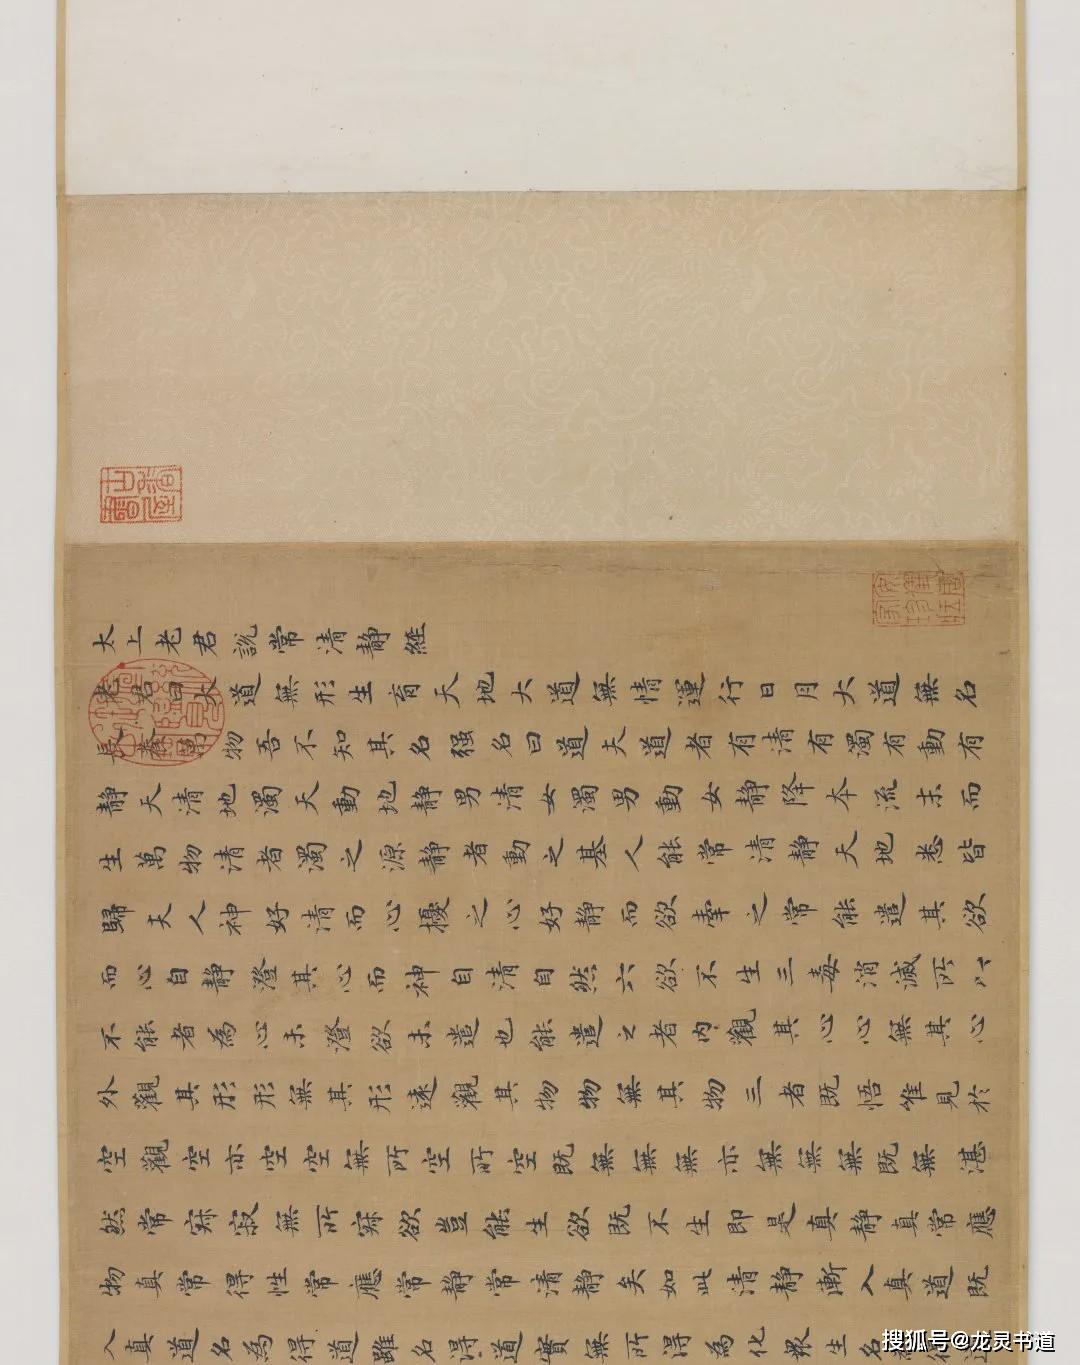 太上老君說常清静經
老君曰大道無形生育天地大道無情運行日月大道無名
長養萬物吾不知其名强名曰道夫道者有清有濁有動有
静天清地濁天動地静男清女濁男動女静降本流末而
生萬物清者濁之源静者動之基人能常清静天地悉皆
歸夫人神好清而心擾之心好静而欲牽之常能遣其欲
而心自静澄其心而神自清自然六欲不生三毒消滅所以
不能者為心未澄欲未遣也能遣之者内觀其心心無其心
外觀其形形無其形遠觀其物物無其物三者既悟唯見於
空觀空亦空空無所空所空既無無無亦無無無既無湛
然常寂寂無所寂欲豈能生欲既不生即是真静真常應
物真常得性常應常静常清静矣如此清静漸入真道既
入真道名為得道雖名得道實無所得為化衆生名
搜狐号@龙灵书道